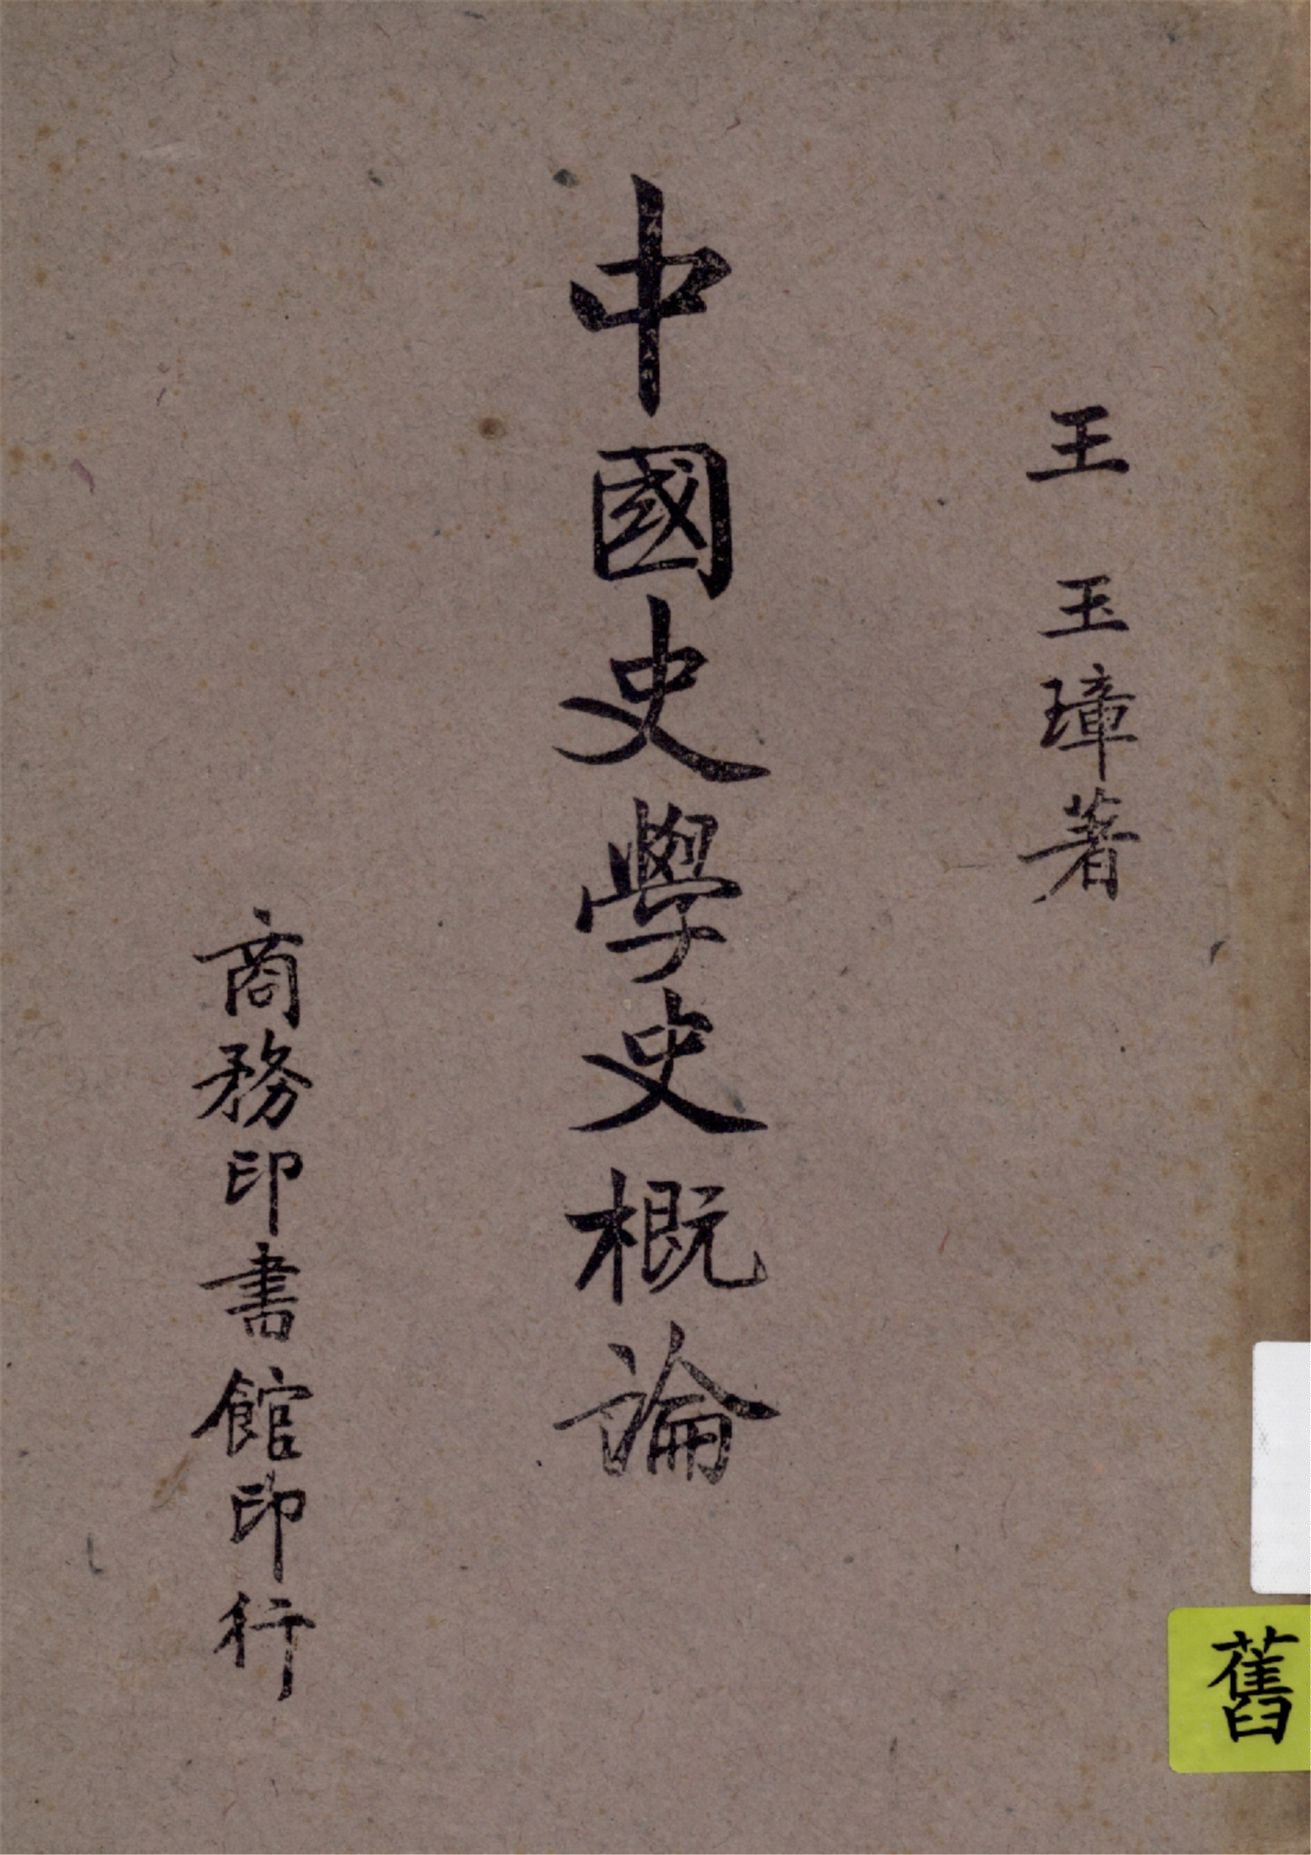 王玉璋著
中國史學史概論
商務印書館印行
舊